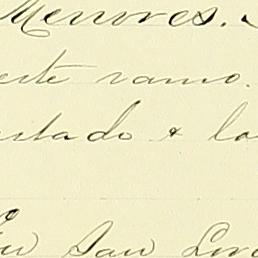 Menores.
este ramo.
stado & la
En San Lor